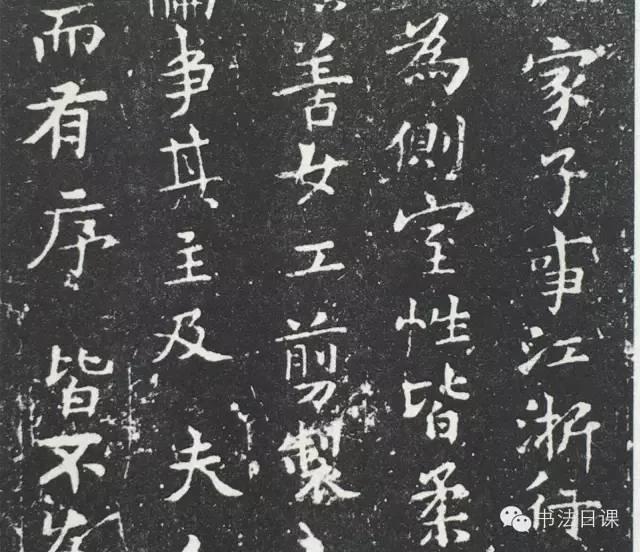 家子事江浙行
為側室性皆柔
善女工剪製
事其主及 夫
而有序 皆不
书法日课